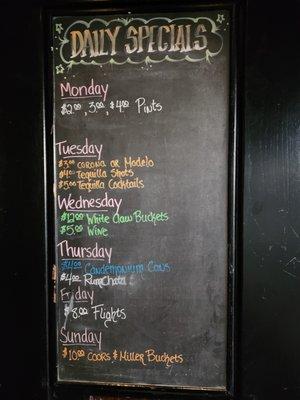 DAILY SPECIALS
Monday
$2.00, 3.00, $4.00 Pints
Tuesday
$3.00 Corona or Modelo
$4.00 Tequilla Shots
$5.00 Tequilla Cocktails
Wednesday
$12.00 White Claw Buckets
$5.00 Wine
Thursday
$4.00 Candemonium Cans
$4.00 RumChata
Friday
$8.00 Flights
Sunday
$10.00 Coors & Miller Buckets